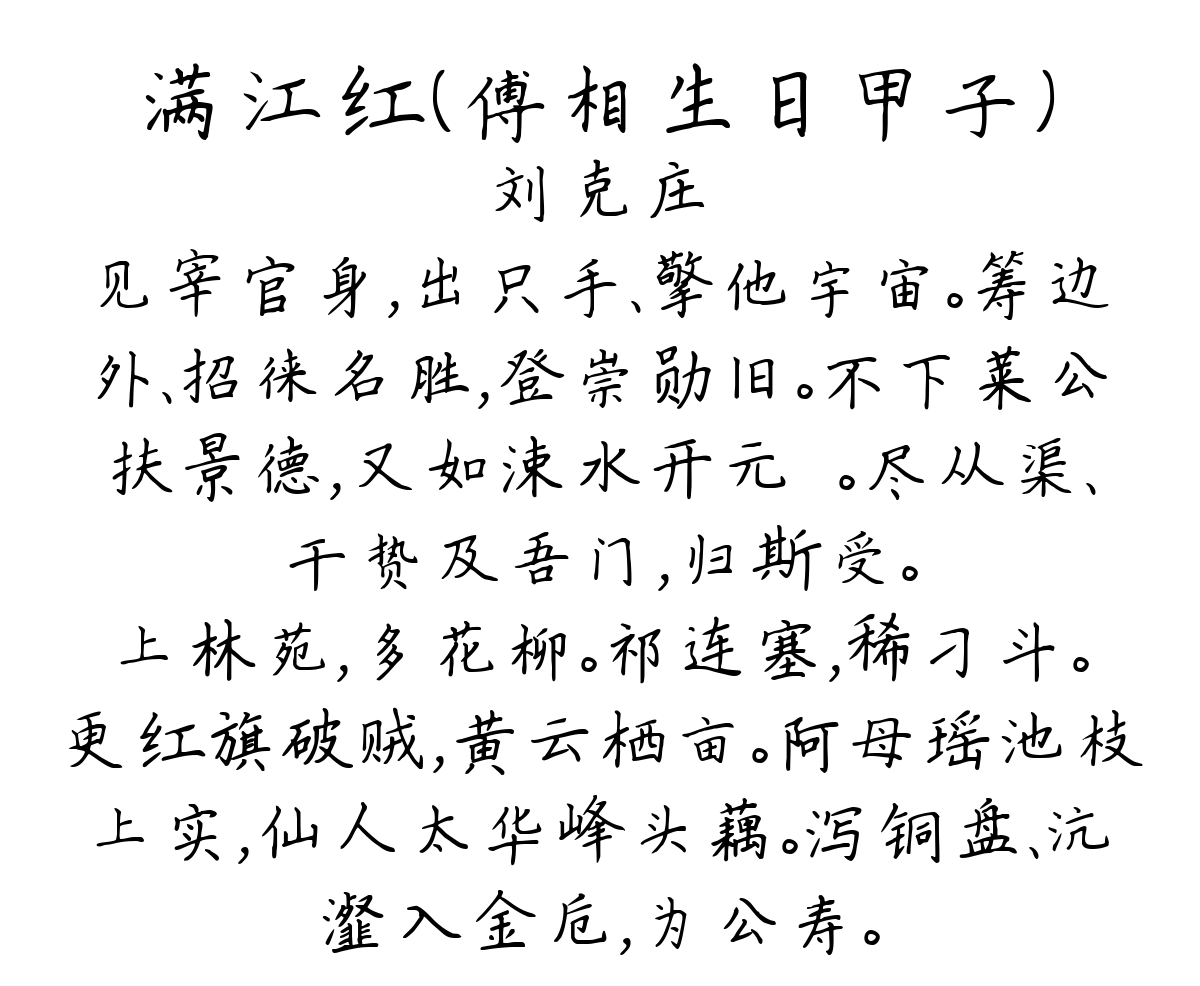 满江红(傅相生日甲子)
刘克庄
见宰官身,出只手、擎他宇宙。筹边
外、招徕名胜,登崇勋旧。不下莱公
扶景德,又如涑水开元 。尽从渠、
干贽及吾门,归斯受。
上林苑,多花柳。祁连塞,稀刁斗。
更红旗破贼,黄云栖亩。阿母瑶池枝
上实,仙人太华峰头藕。泻铜盘、沆
瀣入金卮,为公寿。